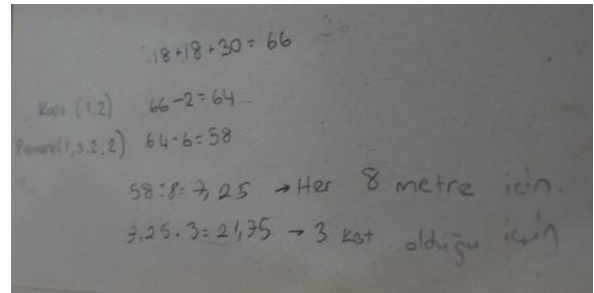 18+18+30=66
Kapı (1,2) 66-2=64
Pencere(1,5.2,2) 64-6=58
58:8=7,25 → Her 8 metre için.
7,25.3=21,75 → 3 kat olduğu için